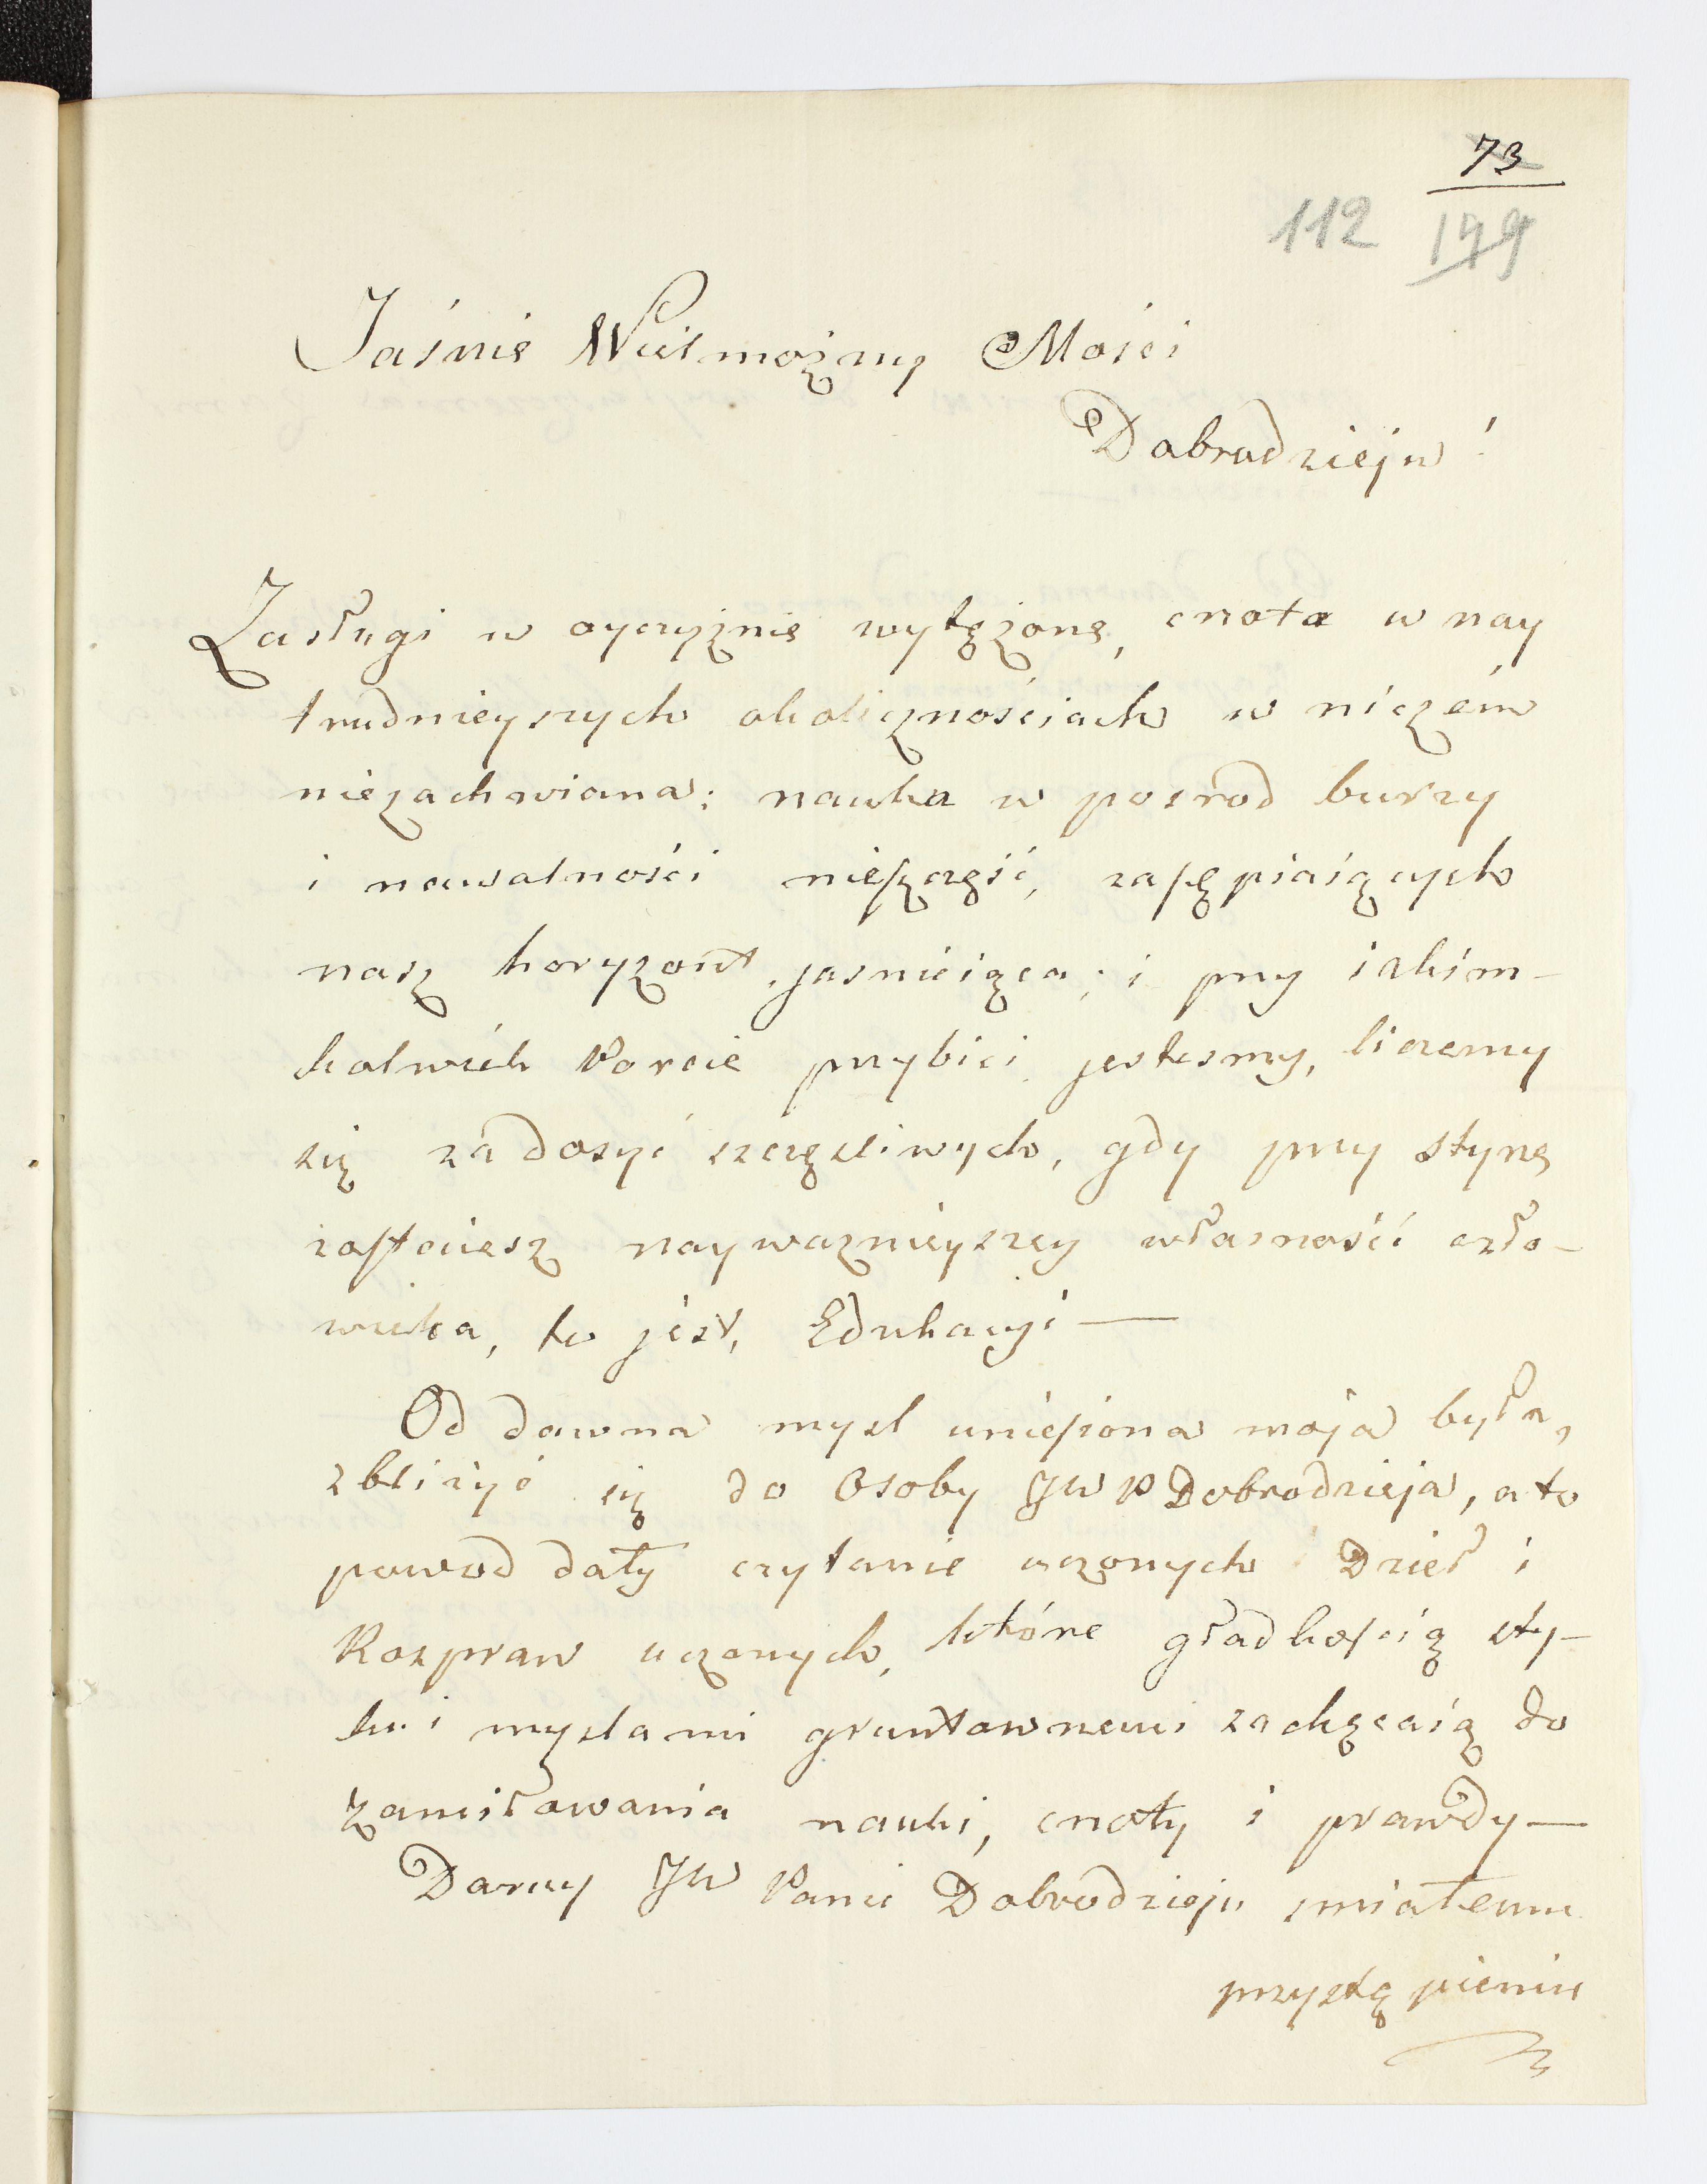 73
112 199
Jaśnie Wielmożny Mości
Dobrodzieju!
Zasługi w oyczyznie wytężone, cnota w nay
trudnieyszych okolicznościach w niczém
niezachwiana; nauka w posrod burzy
i nawalności nieszczęść, zasępiaiących
nasz horyzont, jasnieiąca; i przy iakim-
kolwiek Porcie przybici jestesmy, liczemy
się za dosyć szczęsliwych, gdy przy styrze
zostaiesz naywaznieyszey własności czło-
wieka, to jest, Edukacyi —
Od dawna mysl uniesiona moja była,
zbliżyć się do Osoby JWP Dobrodzieja, a to
powod dały czytanie uczonych Dzieł i
Rozpraw uczonych, które gładkością sty-
lu i myslami gruntownemi zachęcaią do
zamiłowania nauki, cnoty i prawdy —
Daruy JW Panie Dobrodzieju smiałemu
przystąpieniu